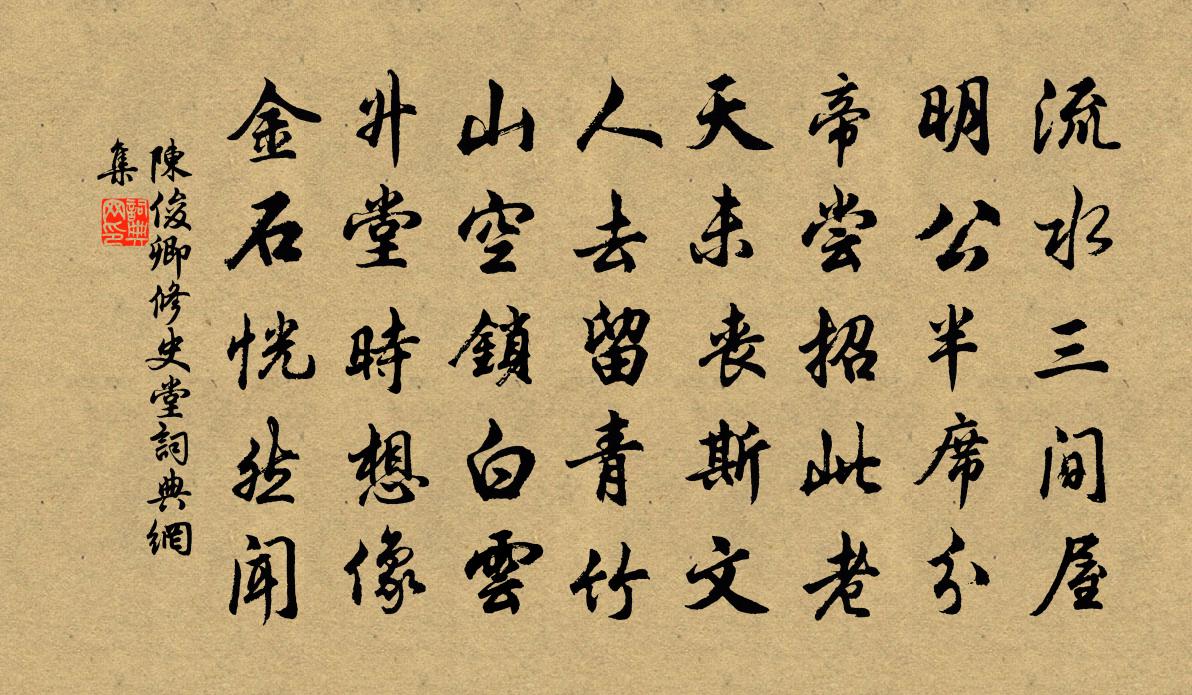 流水三間屋
明公半席分
帝嘗招此老
天未喪斯文
人去留青竹
山空鎖白雲
升堂時想像
金石恍然聞
陳俊卿修史堂詞典網
集
詞典
网印